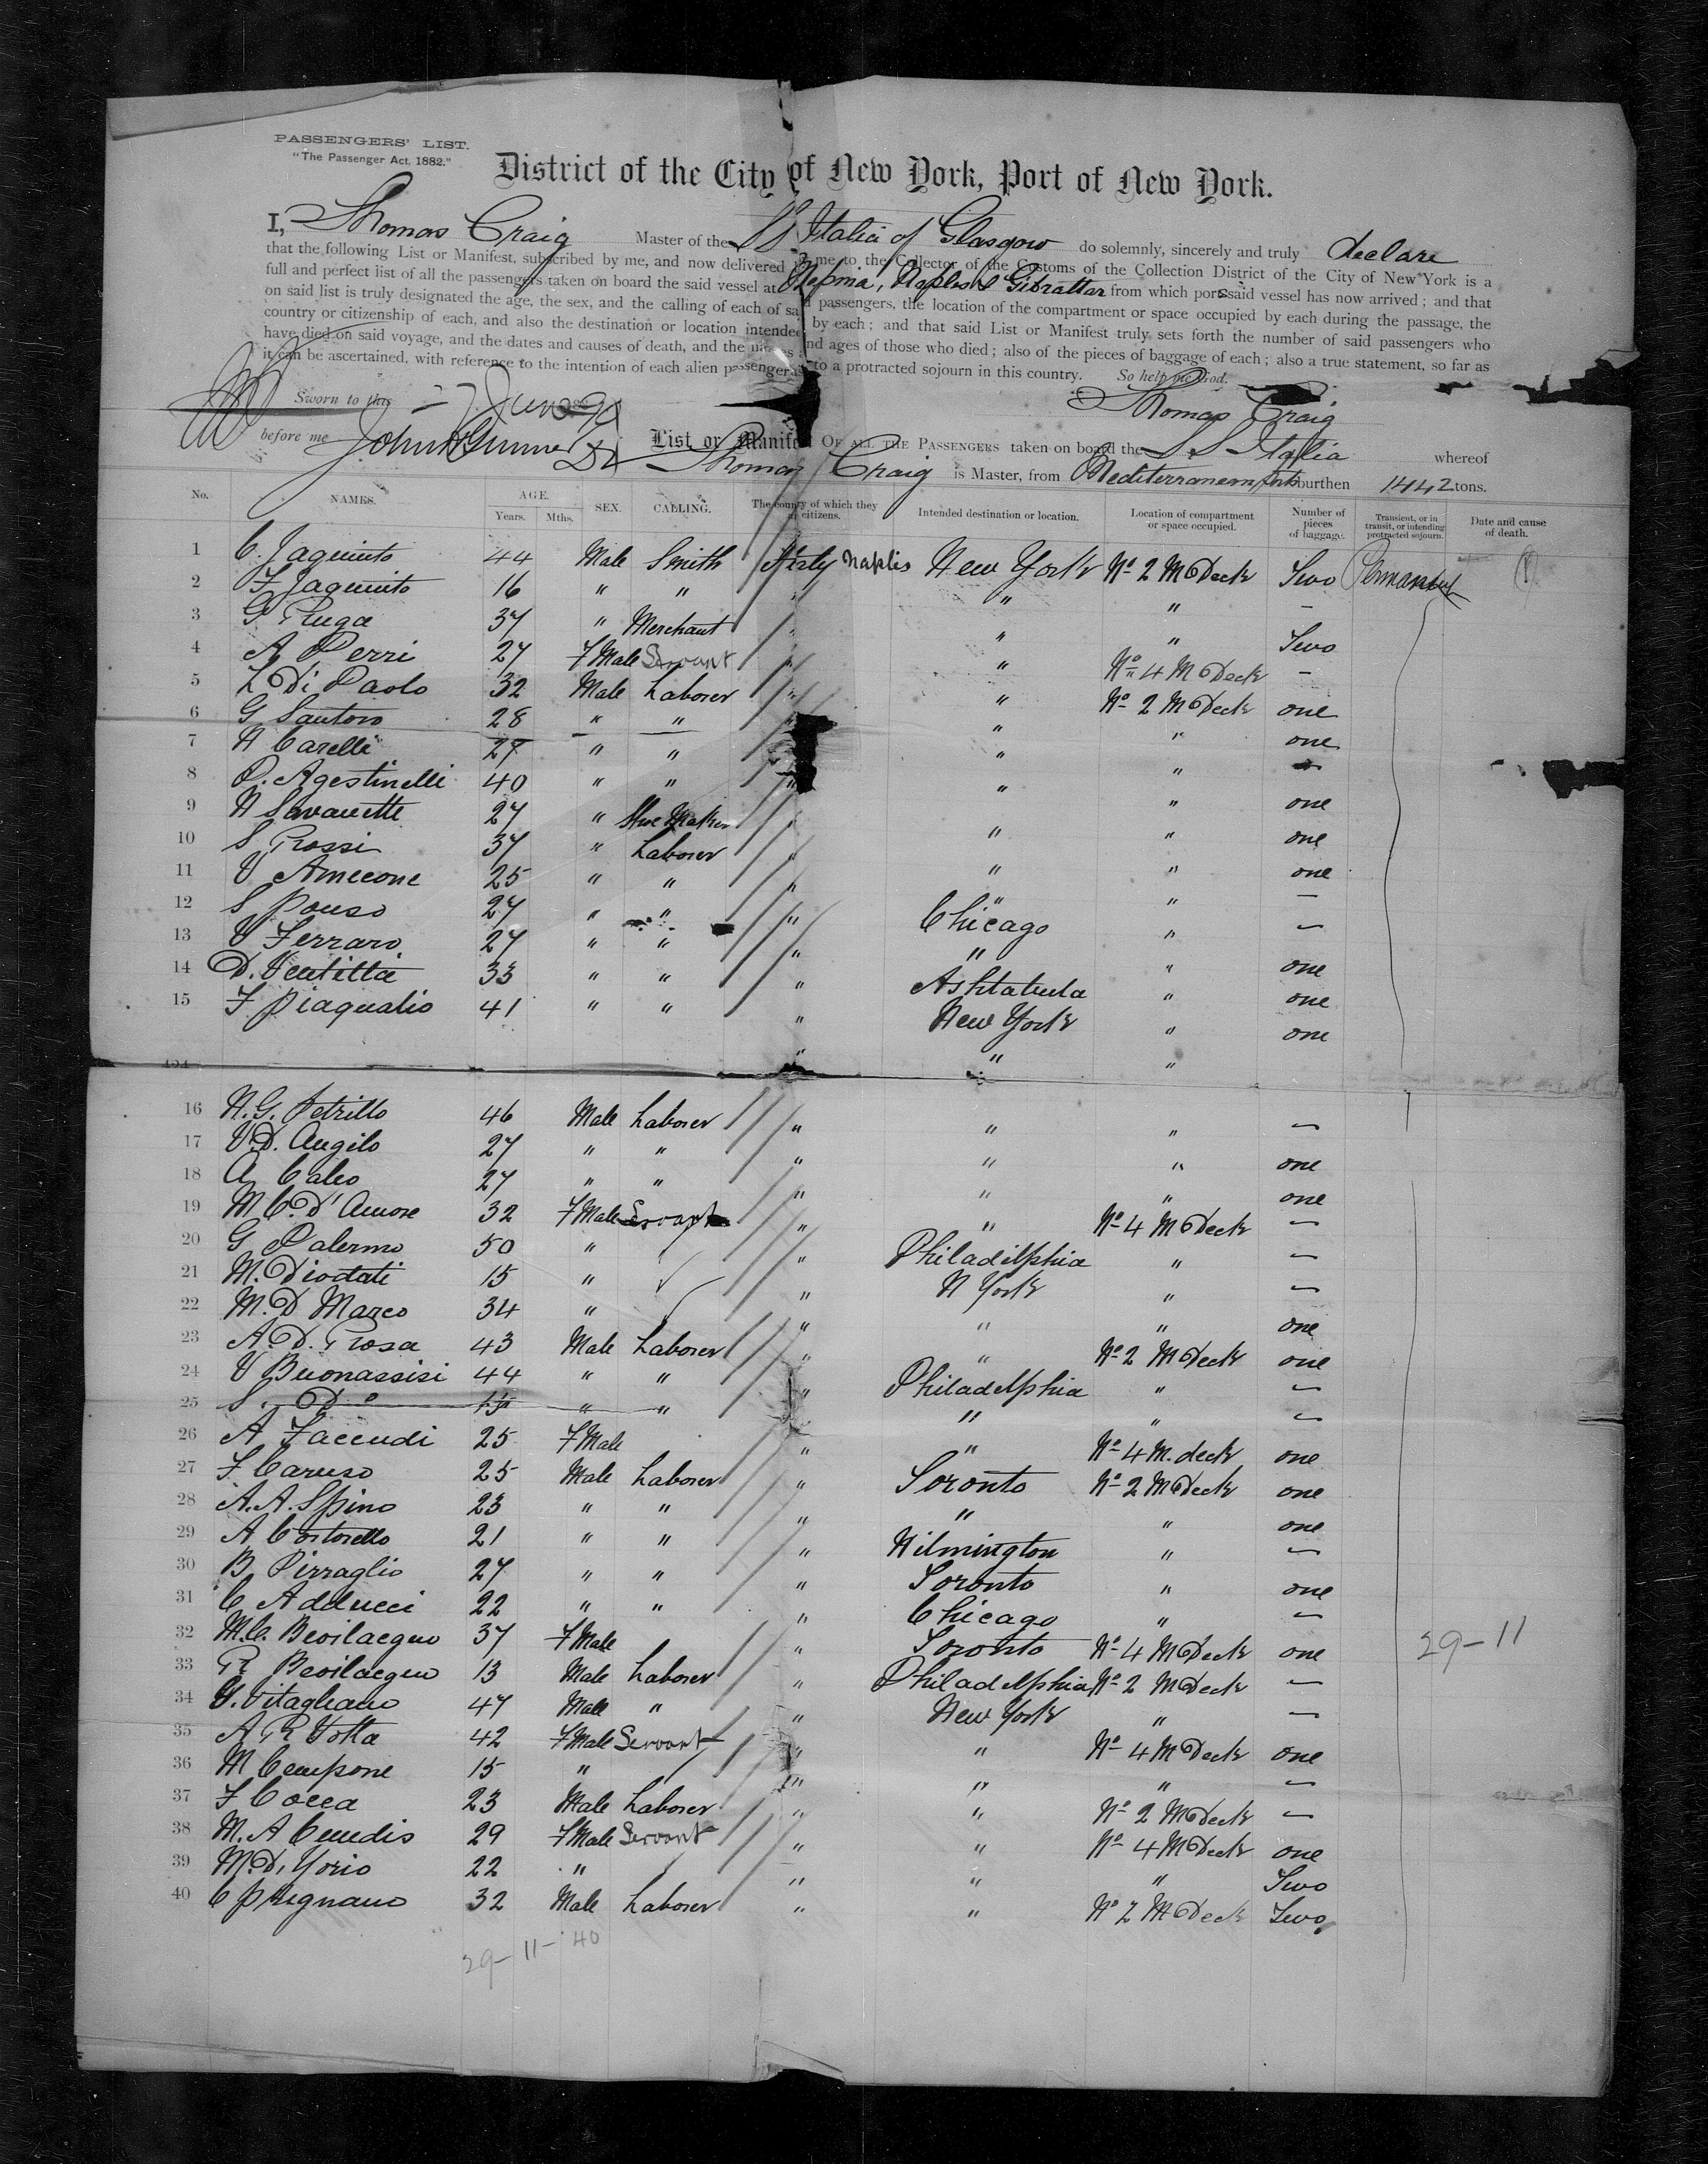 PASSENGERS' LIST.
"The Passenger Act, 1882."
District of the City of New York, Port of New York.
I, Thomas Craig Master of the SS Italia of Glasgow do solemnly, sincerely and truly declare
that the following List or Manifest, subscribed by me, and now delivered by me to the Collector of the Customs of the Collection District of the City of New York is a
full and perfect list of all the passengers taken on board the said vessel at Messina, Naples & Gibraltar from which ports said vessel has now arrived; and that
on said list is truly designated the age, the sex, and the calling of each of said passengers, the location of the compartment or space occupied by each during the passage, the
country or citizenship of each, and also the destination or location intended by each; and that said List or Manifest truly sets forth the number of said passengers who
have died on said voyage, and the dates and causes of death, and the names and ages of those who died; also of the pieces of baggage of each; also a true statement, so far as
it can be ascertained, with reference to the intention of each alien passenger as to a protracted sojourn in this country. So help me God.
Sworn to this 7 June
Thomas Craig
before me John
List or Manifest OF ALL THE PASSENGERS taken on board the SS Italia whereof
Thomas Craig is Master, from Mediterranean Ports burthen 1442 tons.
No. NAMES. AGE. Years. Mths. SEX. CALLING. The country of which they are citizens. Intended destination or location. Location of compartment or space occupied. Number of pieces of baggage. Transient, or in transit, or intending protracted sojourn. Date and cause of death.
1 C. Jaquinto 44 Male Smith Italy Naples New York No 2 M Deck Two Permanent
2 F Jaquinto 16 " " " " " —
3 G Ruga 37 " Merchant " " " Two
4 A Perri 27 F Male Servant " " No 4 M Deck —
5 L Di Paolo 32 Male Laborer " " No 2 M Deck one
6 G Santoro 28 " " " " " one
7 N Carelli 27 " " " " " —
8 D. Agestinelli 40 " " " " " one
9 N Savanette 27 " Shoe Maker " " " one
10 S Rossi 37 " Laborer " " " one
11 V Amecone 25 " " " " " —
12 S Pouso 27 " " " Chicago " —
13 V Ferraro 27 " " " " " one
14 D. Ventitta 33 " " " Ashtabula " one
15 F Piaqualio 41 " " " New York " one
" " "
16 N. G. Petrillo 46 Male Laborer " " " —
17 V. D. Angilo 27 " " " " " one
18 A Caleo 27 " " " " " one
19 M C. D'Amore 32 F Male Servant " " No 4 M Deck —
20 G Palermo 50 " " Philadelphia " —
21 M. Diodati 15 " " N York " —
22 M. D Marco 34 " " " " one
23 A. D. Rosa 43 Male Laborer " " No 2 M Deck one
24 V Buonassisi 44 " " " Philadelphia " —
25 S. Do 15 " " " " —
26 A Faccudi 25 F Male " " No 4 M. deck one
27 F Caruso 25 Male Laborer " Toronto No 2 M Deck one
28 A. A. Spino 23 " " " " " one
29 A Cortorello 21 " " " Wilmington " —
30 B Pirraglio 27 " " " Toronto " one
31 C Adducci 22 " " " Chicago " —
32 M. C. Bevilacquo 37 F Male " Toronto No 4 M Deck one 29–11
33 R Bevilacquo 13 Male Laborer " Philadelphia No 2 M Deck —
34 V. Vitagliano 47 Male " " New York " —
35 A R Votta 42 F Male Servant " " No 4 M Deck one
36 M Campone 15 " " " " —
37 F Cocca 23 Male Laborer " " No 2 M Deck —
38 M. A Cundis 29 F Male Servant " " No 4 M Deck one
39 M. D, Yorio 22 " " " " Two
40 C Prignano 32 Male Laborer " " No 2 M Deck Two
29–11–40